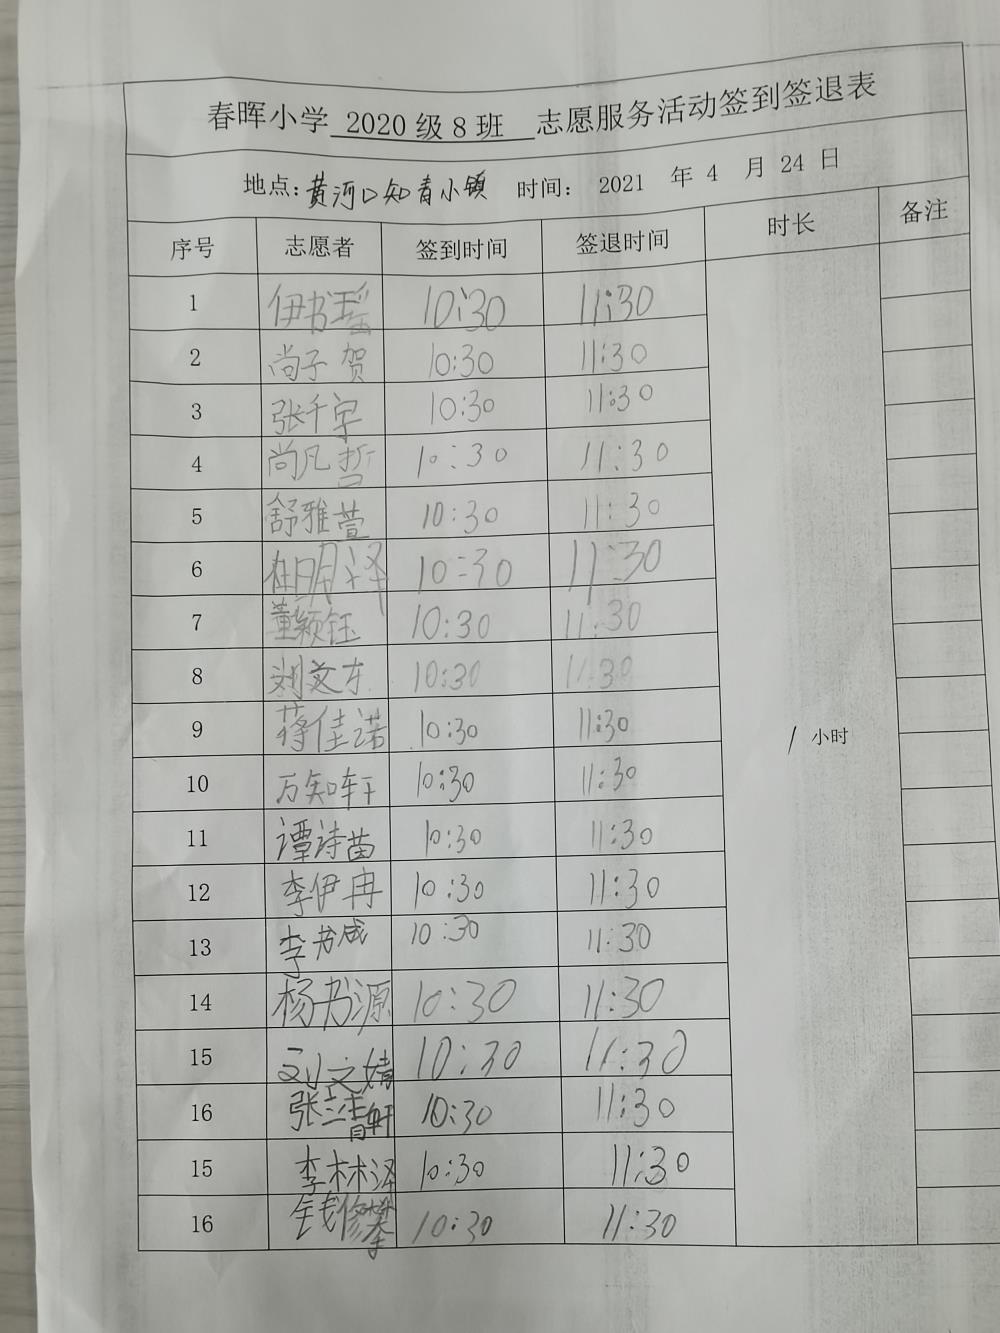 春晖小学 2020 级 8 班 志愿服务活动签到签退表
地点：黄河口知青小镇 时间： 2021 年 4 月 24 日
序号 志愿者 签到时间 签退时间 时长 备注
1 伊书瑶 10:30 11:30
2 尚子贺 10:30 11:30
3 张千宇 10:30 11:30
4 尚凡哲 10:30 11:30
5 舒雅萱 10:30 11:30
6 杜明泽 10:30 11:30
7 董颖钰 10:30 11:30
8 刘文东 10:30 11:30
9 蒋佳诺 10:30 11:30
1 小时
10 万知轩 10:30 11:30
11 谭诗苗 10:30 11:30
12 李伊冉 10:30 11:30
13 李书成 10:30 11:30
14 杨书源 10:30 11:30
15 刘文婧 10:30 11:30
16 张轩 10:30 11:30
15 李林泽 10:30 11:30
16 钱修攀 10:30 11:30